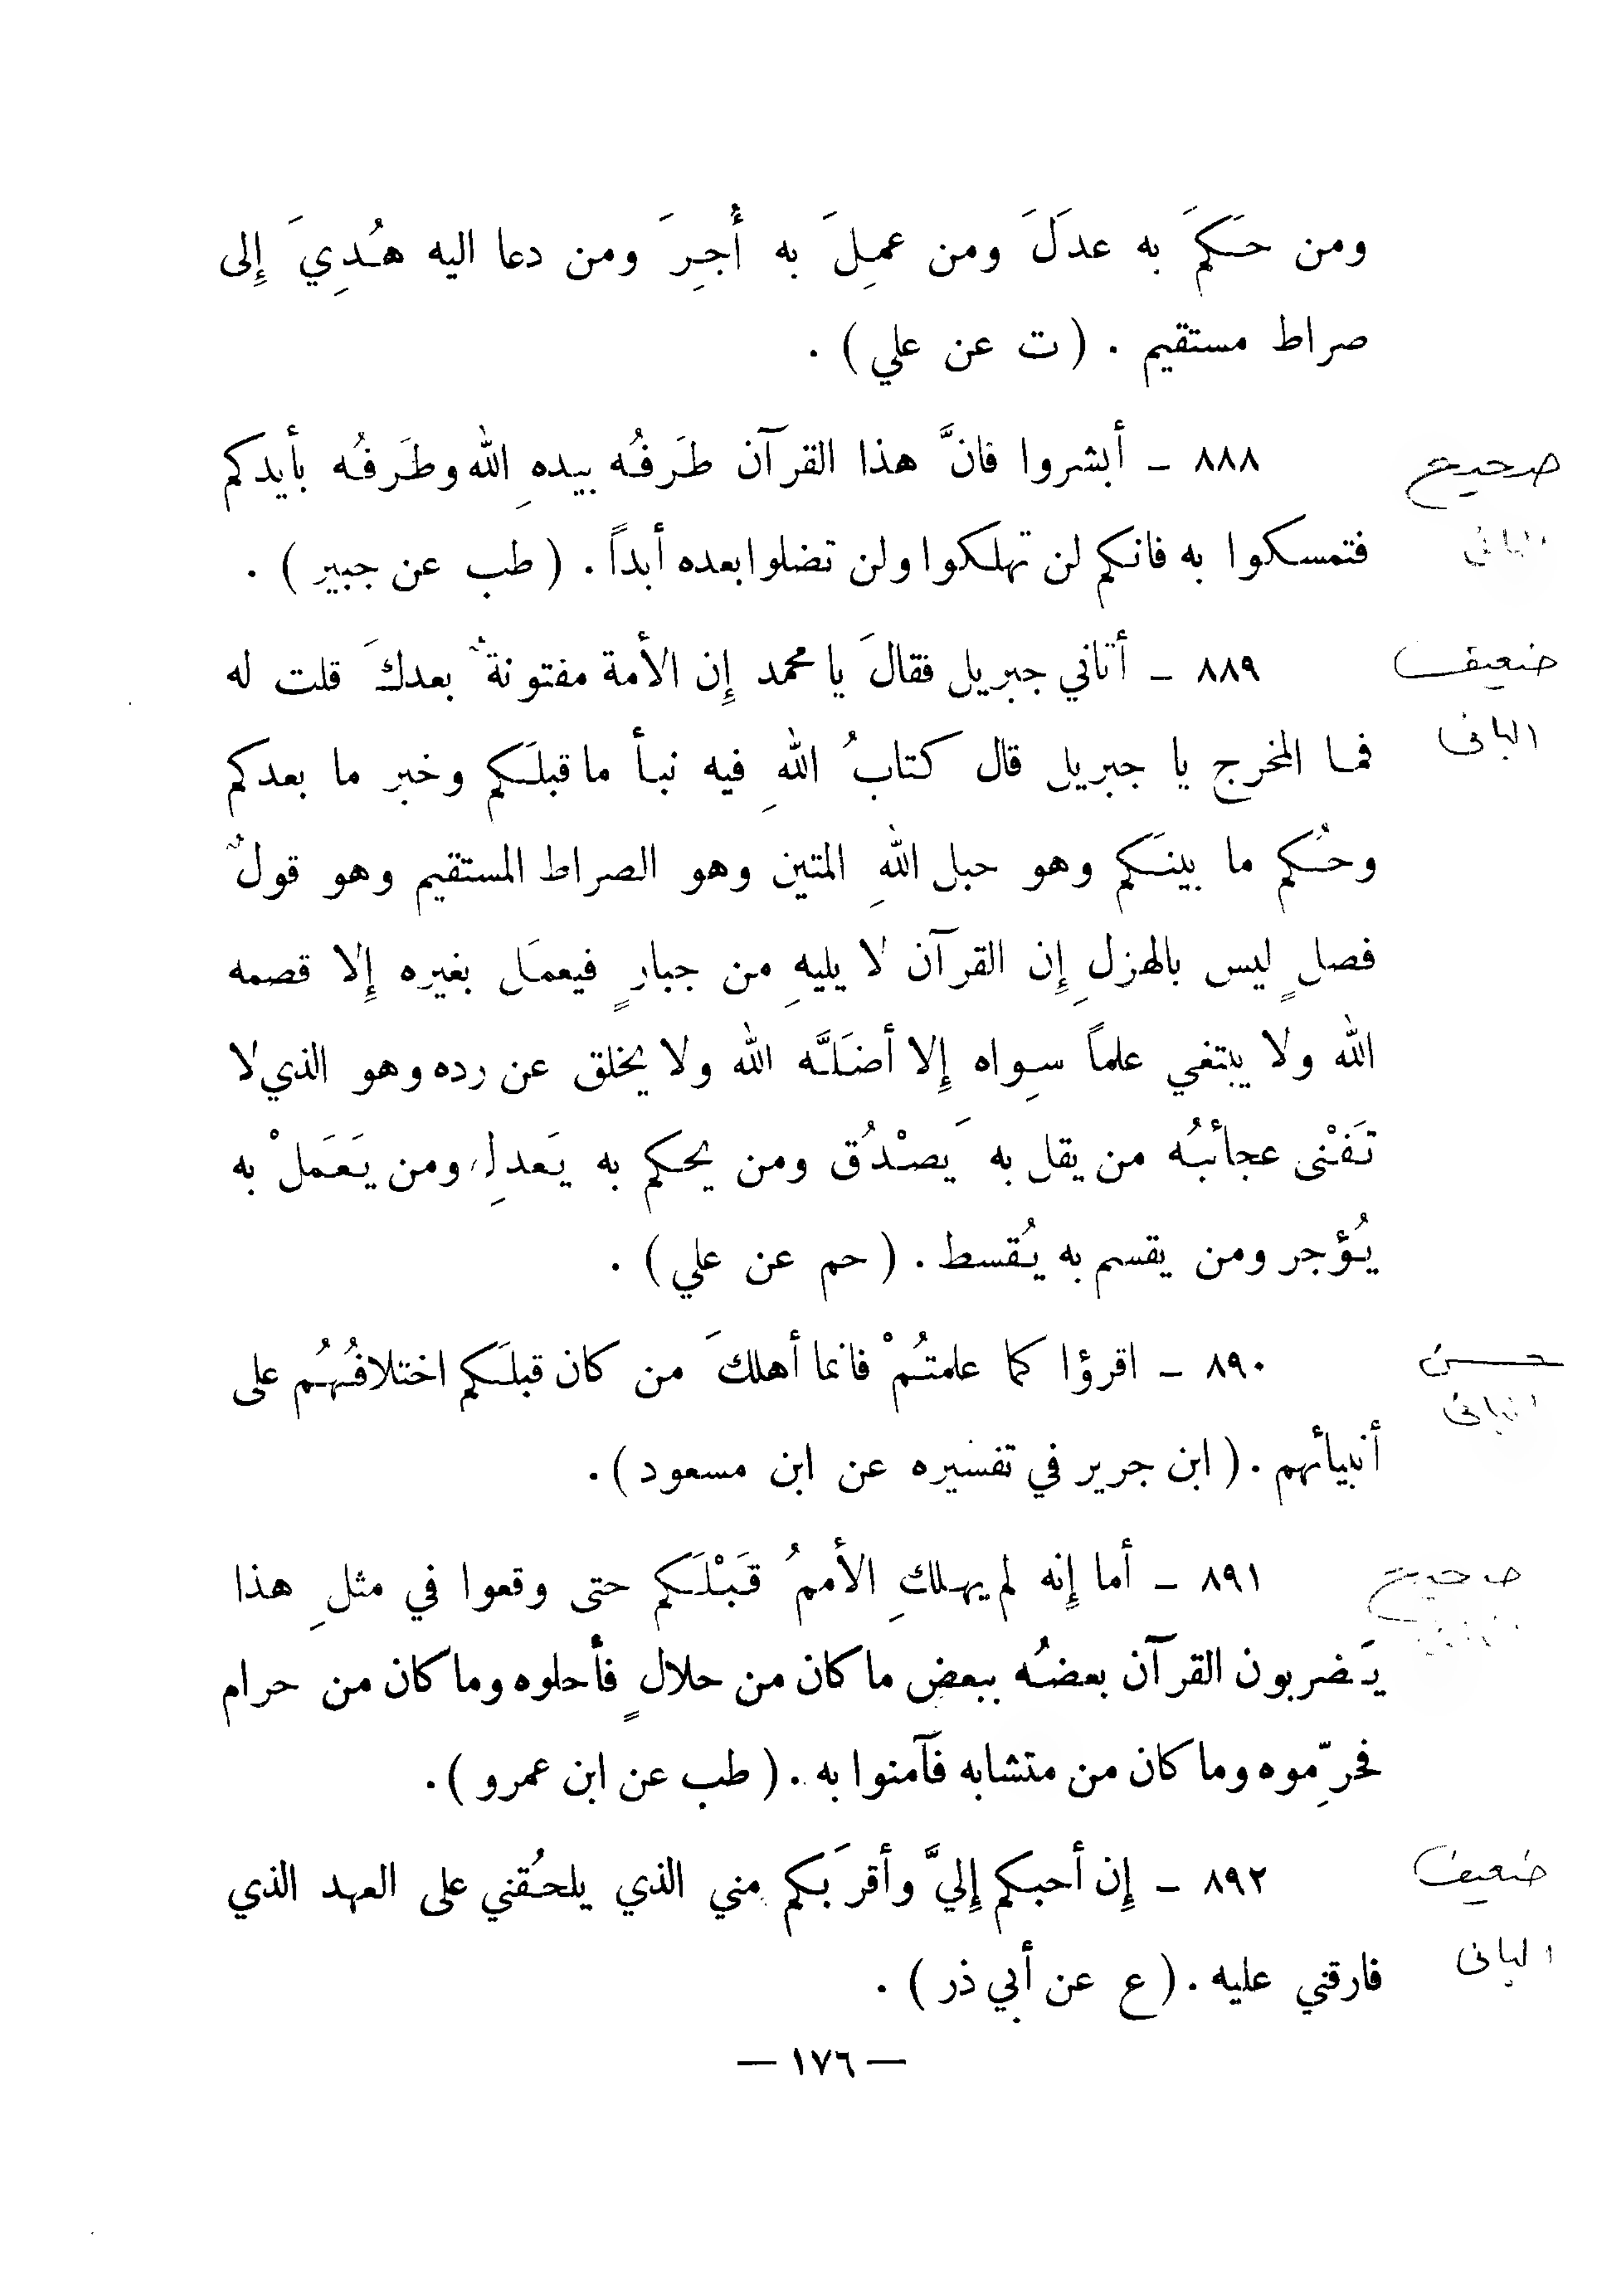 ومن حَكمَ به عدلَ ومن عمِلَ به أُجِرَ ومن دعا اليه هُدِيَ إِلى
صراط مستقيم . ( ت عن علي ) .
صحيح
٨٨٨ - أبشروا فانَّ هذا القرآن طَرفُه بيدهِ الله وطَرفُه بأيدكم
البانى
فتمسكوا به فانكم لن تهلكوا ولن تضلوا بعده أبداً . ( طب عن جبير ) .
ضعيف
٨٨٩ - أتاني جبريل فقالَ يا محمد إِن الأمة مفتونةٌ بعدكَ قلت له
البانى
فما المخرج يا جبريل قال كتابُ اللهِ فيه نبأ ما قبلَكم وخبر ما بعدكم
وحُكم ما بينَكم وهو حبل اللهِ المتين وهو الصراط المستقيم وهو قولٌ
فصلٍ ليس بالهزلِ إِن القرآن لا يليهِ من جبارٍ فيعمَل بغيره إِلا قصمه
الله ولا يبتغي علماً سِواه إِلا أضَلَّه الله ولا يخلق عن رده وهو الذي لا
تَفْنى عجائبُه من يقل به يَصْدُق ومن يحكم به يَعدلِ ومن يَعَملْ به
يُؤجر ومن يقسم به يُقسط . ( حم عن علي ) .
حسن
٨٩٠ - اقرؤا كما علمتُمْ فانما أهلكَ من كان قبلَكم اختلافُهُم على
البانى
أنبيأهم . ( ابن جرير في تفسيره عن ابن مسعود ) .
صحيح
٨٩١ - أما إِنه لم يهلكِ الأممُ قَبْلَكم حتى وقعوا في مثلِ هذا
يَضربون القرآن بعضُه ببعض ما كان من حلالٍ فأحلوه وما كان من حرام
فحرِّموه وما كان من متشابه فآمنوا به . ( طب عن ابن عمرو ) .
ضعيف
٨٩٢ - إِن أحبكم إِليَّ وأقرَبكم مني الذي يلحُقني على العهد الذي
البانى
فارقني عليه . ( ع عن أبي ذر ) .
— ١٧٦ —